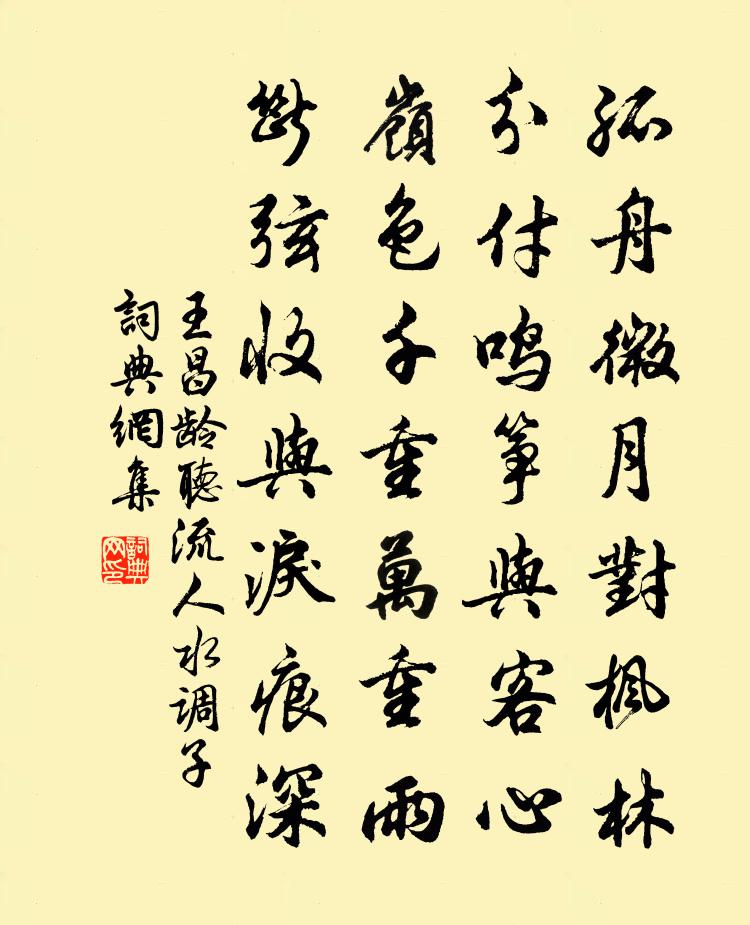 孤舟微月對楓林
分付鳴箏與客心
嶺色千重萬重雨
斷弦收與淚痕深
王昌龄聽流人水调子
詞典網集
詞典网印